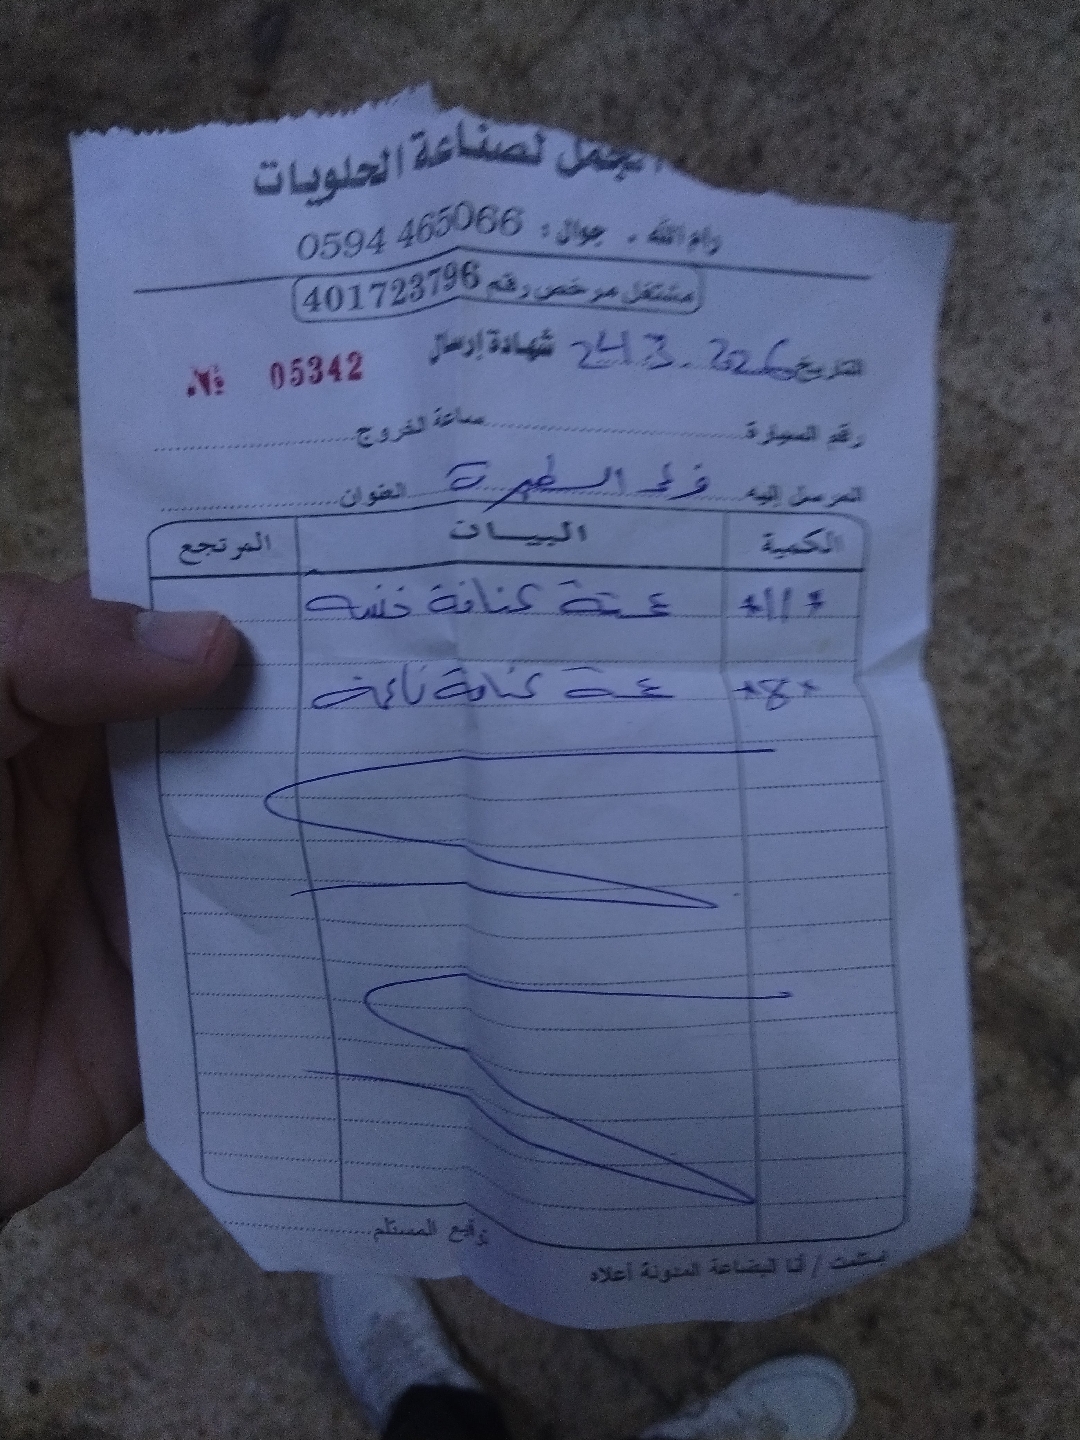 الجمل لصناعة الحلويات
رام الله - جوال: 0594 465066
مشتغل مرخص رقم 401723796
التاريخ 24.3.2026 شهادة إرسال
№ 05342
رقم السيارة ساعة الخروج
المرسل إليه فرع الطيرة العنوان
الكمية البيـــان المرتجع
*11* كنافة خشنه
*8* كنافة ناعمه
توقيع المستلم
استلمت / أنا البضاعة المدونة أعلاه